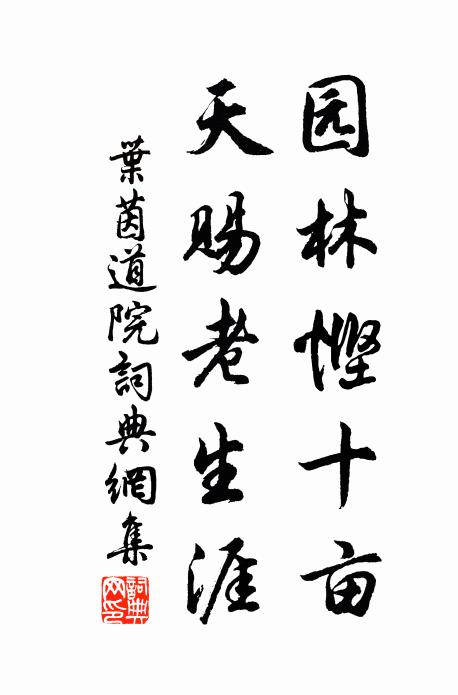 园林悭十亩
天赐老生涯
葉茵道院詞典網集
詞典网印